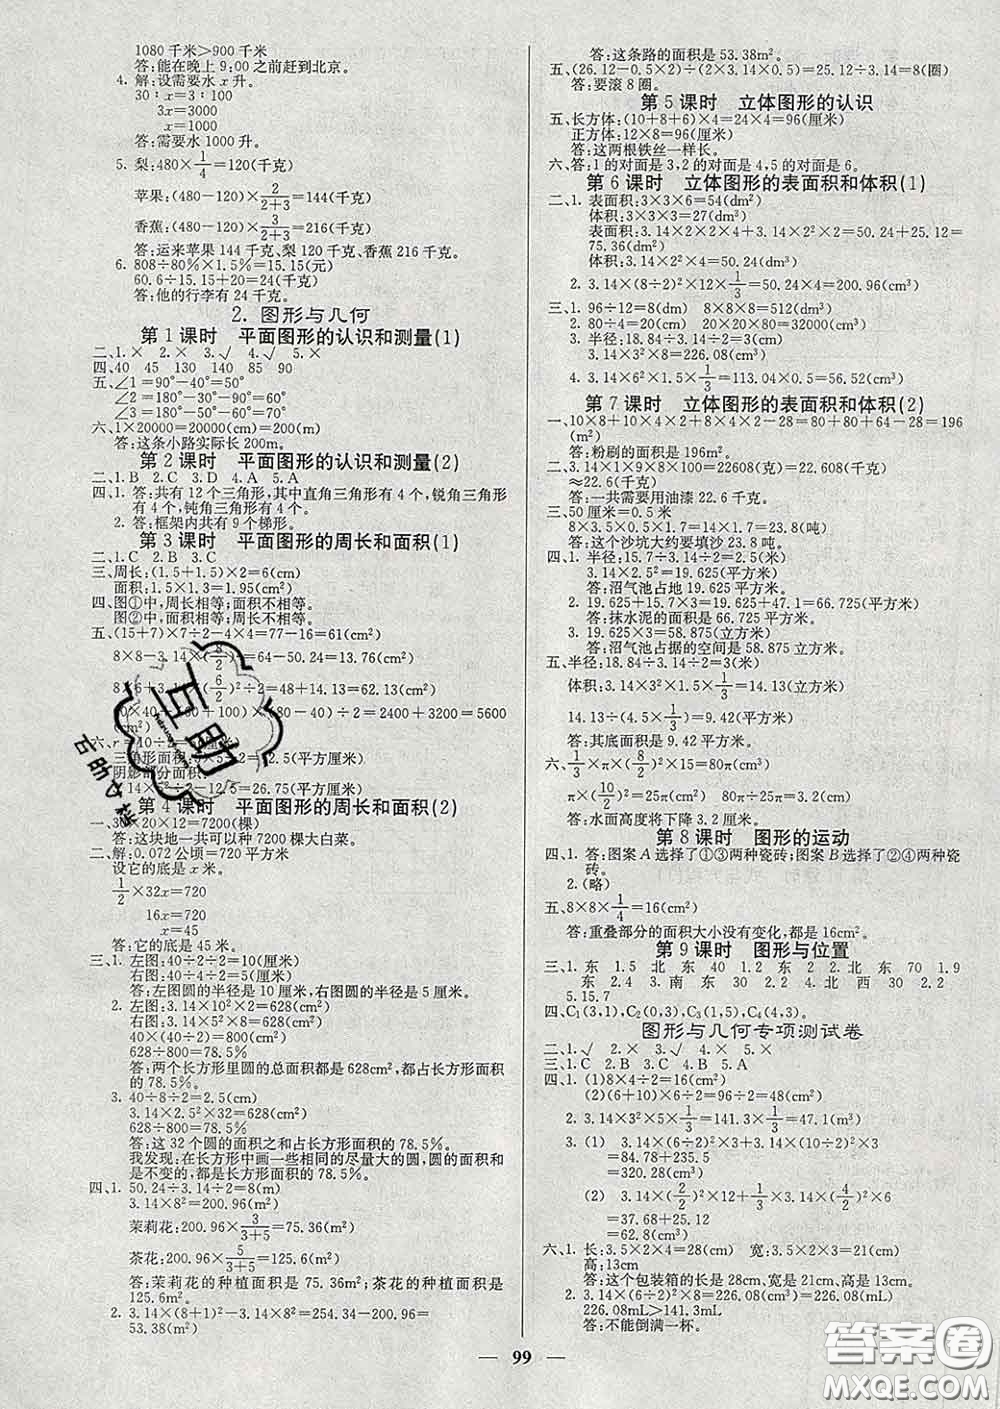 1080千米＞900千米
答:能在晚上9:00之前赶到北京。
4. 解:设需要水x升。
30∶x=3∶100
3x=3000
x=1000
答:需要水1000升。
5. 梨:480×1/4=120(千克)
苹果:(480-120)×2/(2+3)=144(千克)
香蕉:(480-120)×3/(2+3)=216(千克)
答:运来苹果144千克、梨120千克、香蕉216千克。
6. 808÷80%×1.5%=15.15(元)
60.6÷15.15+20=24(千克)
答:他的行李有24千克。
2. 图形与几何
第1课时 平面图形的认识和测量(1)
二、1.× 2.× 3.√ 4.√ 5.×
四、40 45 130 140 85 90
五、∠1=90°-40°=50°
∠2=180°-30°-90°=60°
∠3=180°-50°-60°=70°
六、1×20000=20000(cm)=200(m)
答:这条小路实际长200m。
第2课时 平面图形的认识和测量(2)
二、1.B 2.C 3.D 4.A 5.A
四、1. 答:共有12个三角形,其中直角三角形有4个,锐角三角形有4个,钝角三角形有4个。
2. 答:框架内共有9个梯形。
第3课时 平面图形的周长和面积(1)
二、1.C 2.B 3.C
三、周长:(1.5+1.5)×2=6(cm)
面积:1.5×1.3=1.95(cm²)
四、图①中,周长相等;面积不相等。
图②中,面积相等;周长不相等。
五、(15+7)×7÷2-4×4=77-16=61(cm²)
8×8-3.14×(8/2)²=64-50.24=13.76(cm²)
8×6+3.14×(6/2)²÷2=48+14.13=62.13(cm²)
×40+(   +100)×(   -40)÷2=2400+3200=5600
(cm²)
六、r=10÷2=5(厘米)
三角形面积:5×5÷2=12.5(平方厘米)
阴影部分面积:
3.14×5²÷2-12.5=26.75(平方厘米)
第4课时 平面图形的周长和面积(2)
一、30×20×12=7200(棵)
答:这块地一共可以种7200棵大白菜。
二、解:0.072公顷=720平方米
设它的底是x米。
1/2×32x=720
16x=720
x=45
答:它的底是45米。
三、1. 左图:40÷2÷2=10(厘米)
右图:40÷4÷2=5(厘米)
答:左图圆的半径是10厘米,右图圆的半径是5厘米。
2. 左图:3.14×10²×2=628(cm²)
右图:3.14×5²×8=628(cm²)
40×(40÷2)=800(cm²)
628÷800=78.5%
答:两个长方形里圆的总面积都是628cm²,都占长方形面积的78.5%。
3. 40÷8÷2=2.5(cm)
3.14×2.5²×32=628(cm²)
628÷800=78.5%
答:这32个圆的面积之和占长方形面积的78.5%。
我发现:在长方形中画一些相同的尽量大的圆,圆的面积和是不变的,都是长方形面积的78.5%。
四、1. 50.24÷3.14÷2=8(m)
3.14×8²=200.96(m²)
茉莉花:200.96×3/(3+5)=75.36(m²)
茶花:200.96×5/(3+5)=125.6(m²)
答:茉莉花的种植面积是75.36m²;茶花的种植面积是125.6m²。
2. 3.14×(8+1)²-3.14×8²=254.34-200.96=
53.38(m²)
答:这条路的面积是53.38m²。
五、(26.12-0.5×2)÷(2×3.14×0.5)=25.12÷3.14=8(圈)
答:要滚8圈。
第5课时 立体图形的认识
五、长方体:(10+8+6)×4=24×4=96(厘米)
正方体:12×8=96(厘米)
答:这两根铁丝一样长。
六、答:1的对面是3,2的对面是4,5的对面是6。
第6课时 立体图形的表面积和体积(1)
二、1. 表面积:3×3×6=54(dm²)
体积:3×3×3=27(dm³)
表面积:3.14×2×2×4+3.14×2²×2=50.24+25.12=
75.36(dm²)
体积:3.14×2²×4=50.24(dm³)
2. 3.14×(8÷2)²×12×1/3=50.24×4=200.96(cm³)
三、1. 96÷12=8(dm) 8×8×8=512(dm³)
2. 80÷4=20(cm) 20×20×80=32000(cm³)
3. 半径:18.84÷3.14÷2=3(cm)
3.14×3²×8=226.08(cm³)
4. 3.14×6²×1.5×1/3=113.04×0.5=56.52(cm³)
第7课时 立体图形的表面积和体积(2)
一、10×8+10×4×2+8×4×2-28=80+80+64-28=196
(m²)
答:粉刷的面积是196m²。
二、3.14×1×9×8×100=22608(克)=22.608(千克)
≈22.6(千克)
答:一共需要用油漆22.6千克。
三、50厘米=0.5米
8×3.5×0.5×1.7=14×1.7=23.8(吨)
答:这个沙坑大约要填沙23.8吨。
四、1. 半径:15.7÷3.14÷2=2.5(米)
3.14×2.5²=19.625(平方米)
答:沼气池占地19.625平方米。
2. 19.625+15.7×3=19.625+47.1=66.725(平方米)
答:抹水泥的面积是66.725平方米。
3. 19.625×3=58.875(立方米)
答:沼气池占据的空间是58.875立方米。
五、半径:18.84÷3.14÷2=3(米)
体积:3.14×3²×1.5×1/3=14.13(立方米)
14.13÷(4.5×1/3)=9.42(平方米)
答:其底面积是9.42平方米。
六、1/3×π×(8/2)²×15=80π(cm³)
π×(10/2)²=25π(cm²) 80π÷25π=3.2(cm)
答:水面高度将下降3.2厘米。
第8课时 图形的运动
四、1. 答:图案A选择了①③两种瓷砖;图案B选择了②④两种瓷砖。
2.(略)
五、8×8×1/4=16(cm²)
答:重叠部分的面积大小没有变化,都是16cm²。
第9课时 图形与位置
三、1. 东 1.5 北 东 40 1.2 东 2 北 东 70 1.9
东 2.4 3. 南 东 30 2 4. 北 西 30 2.2
5. 15.7
四、C₁(3,1),C₂(0,3),C₃(1,5),C₄(4,3)。
图形与几何专项测试卷
二、1.√ 2.× 3.√ 4.× 5.×
三、1.C 2.B 3.B 4.B 5.A
四、1. (1)8×4÷2=16(cm²)
(2)(6+10)×6÷2=96÷2=48(cm²)
2. 3.14×3²×5×1/3=141.3×1/3=47.1(m³)
3. (1) 3.14×(6÷2)²×3+3.14×(10÷2)²×3
=84.78+235.5
=320.28(cm³)
(2) 3.14×(2/2)²×12+1/3×3.14×(4/2)²×6
=37.68+25.12
=62.8(cm³)
六、1. 长:3.5×2×4=28(cm) 宽:3.5×2×3=21(cm)
高:13cm
答:这个包装箱的长是28cm、宽是21cm、高是13cm。
2. 3.14×(6÷2)²×8=226.08(cm³)=226.08(mL)
226.08mL＞141.3mL
答:不能倒满一杯。
— 99 —
互助
互助文样
答案圈
MXQE.COM